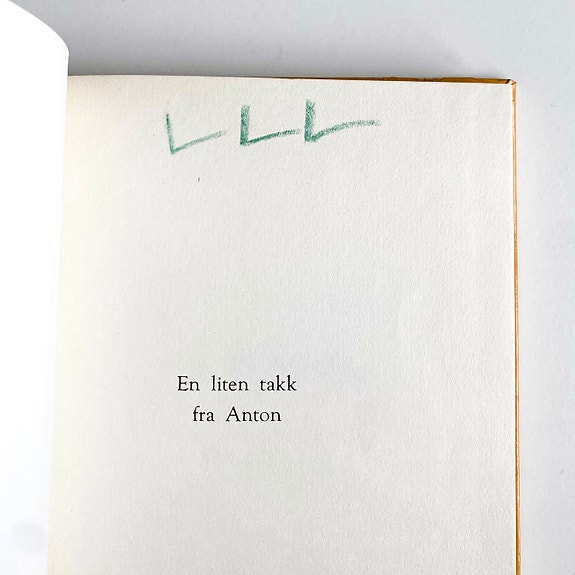 LLL
En liten takk
fra Anton